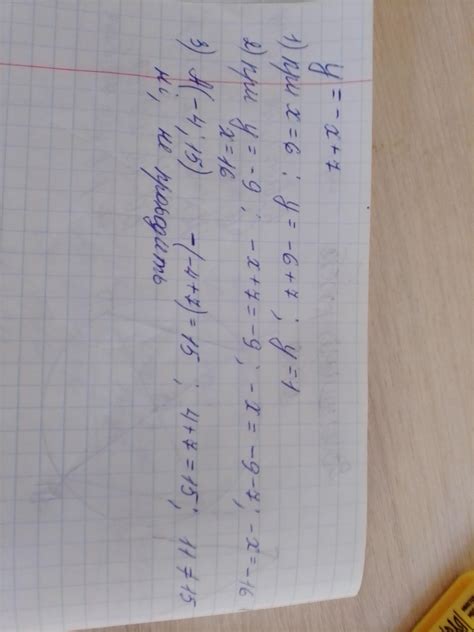 y = - x + 7
1) При x = 6 ; y = - 6 + 7 ; y = 1
2) При y = - 9 ; - x + 7 = - 9 ; - x = - 9 - 7 ; - x = - 16
x = 16
3) A(- 4 ; 15) - (- 4 + 7) = 15 ; 4 + 7 = 15 ; 11 ≠ 15
ні, не проходить